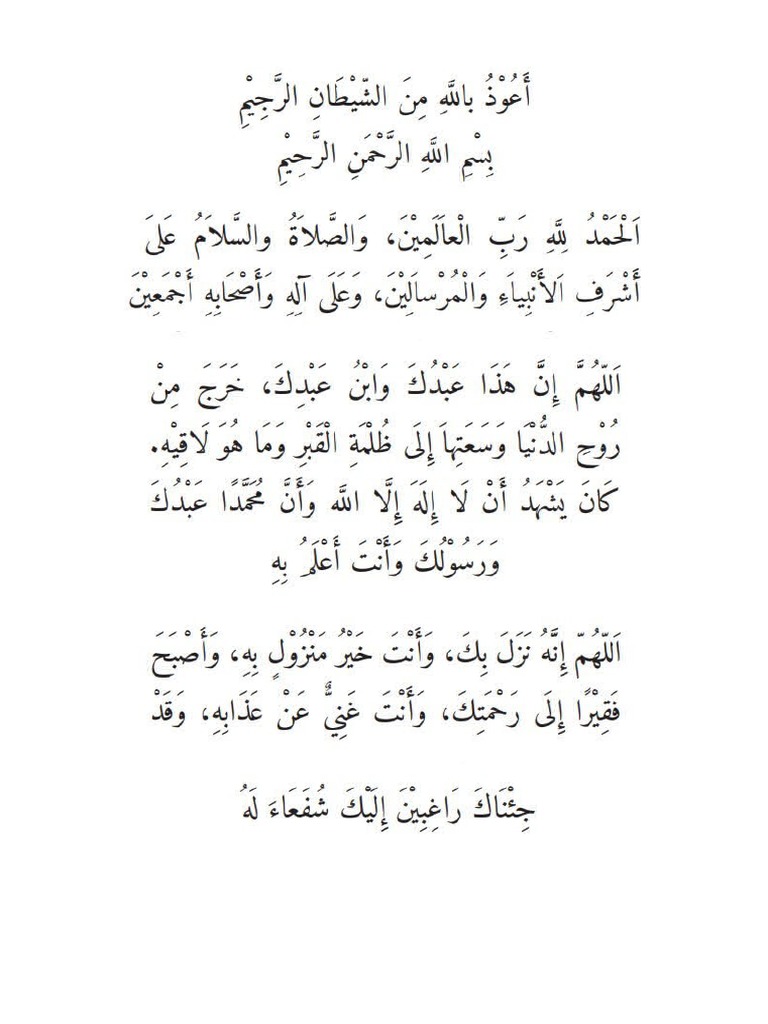 أَعُوْذُ بِاللَّهِ مِنَ الشَّيْطَانِ الرَّجِيْمِ
بِسْمِ اللَّهِ الرَّحْمَنِ الرَّحِيْمِ
اَلْحَمْدُ لِلَّهِ رَبِّ الْعاَلَمِيْنَ، وَالصَّلاَةُ والسَّلاَمُ عَلىَ
أَشْرَفِ اَلأَنْبِياَءِ وَالْمُرْسالَِيْنَ، وَعَلَى آلِهِ وَأَصْحَابِهِ أَجْمَعِيْنَ
اَللّهُمَّ إِنَّ هَذَا عَبْدُكَ وَابْنُ عَبْدِكَ، خَرَجَ مِنْ
رُوْحِ الدُّنْيَا وَسَعَتِهاَ إِلَى ظُلْمَةِ الْقَبْرِ وَمَا هُوَ لَاقِيْهِ.
كَانَ يَشْهَدُ أَنْ لَا إِلَهَ إِلَّا اللَّه وَأَنَّ مُحَمَّدًا عَبْدُكَ
وَرَسُوْلُكَ وَأَنْتَ أَعْلَمُ بِهِ
اَللّهُمّ إِنَّهُ نَزَلَ بِكَ، وَأَنْتَ خَيْرُ مَنْزُوْلٍ بِهِ، وَأَصْبَحَ
فَقِيْرًا إِلَى رَحْمَتِكَ، وَأَنْتَ غَنِيٌّ عَنْ عَذَابِهِ، وَقَدْ
جِئْنَاكَ رَاغِبِيْنَ إِلَيْكَ شُفَعَاءَ لَهُ